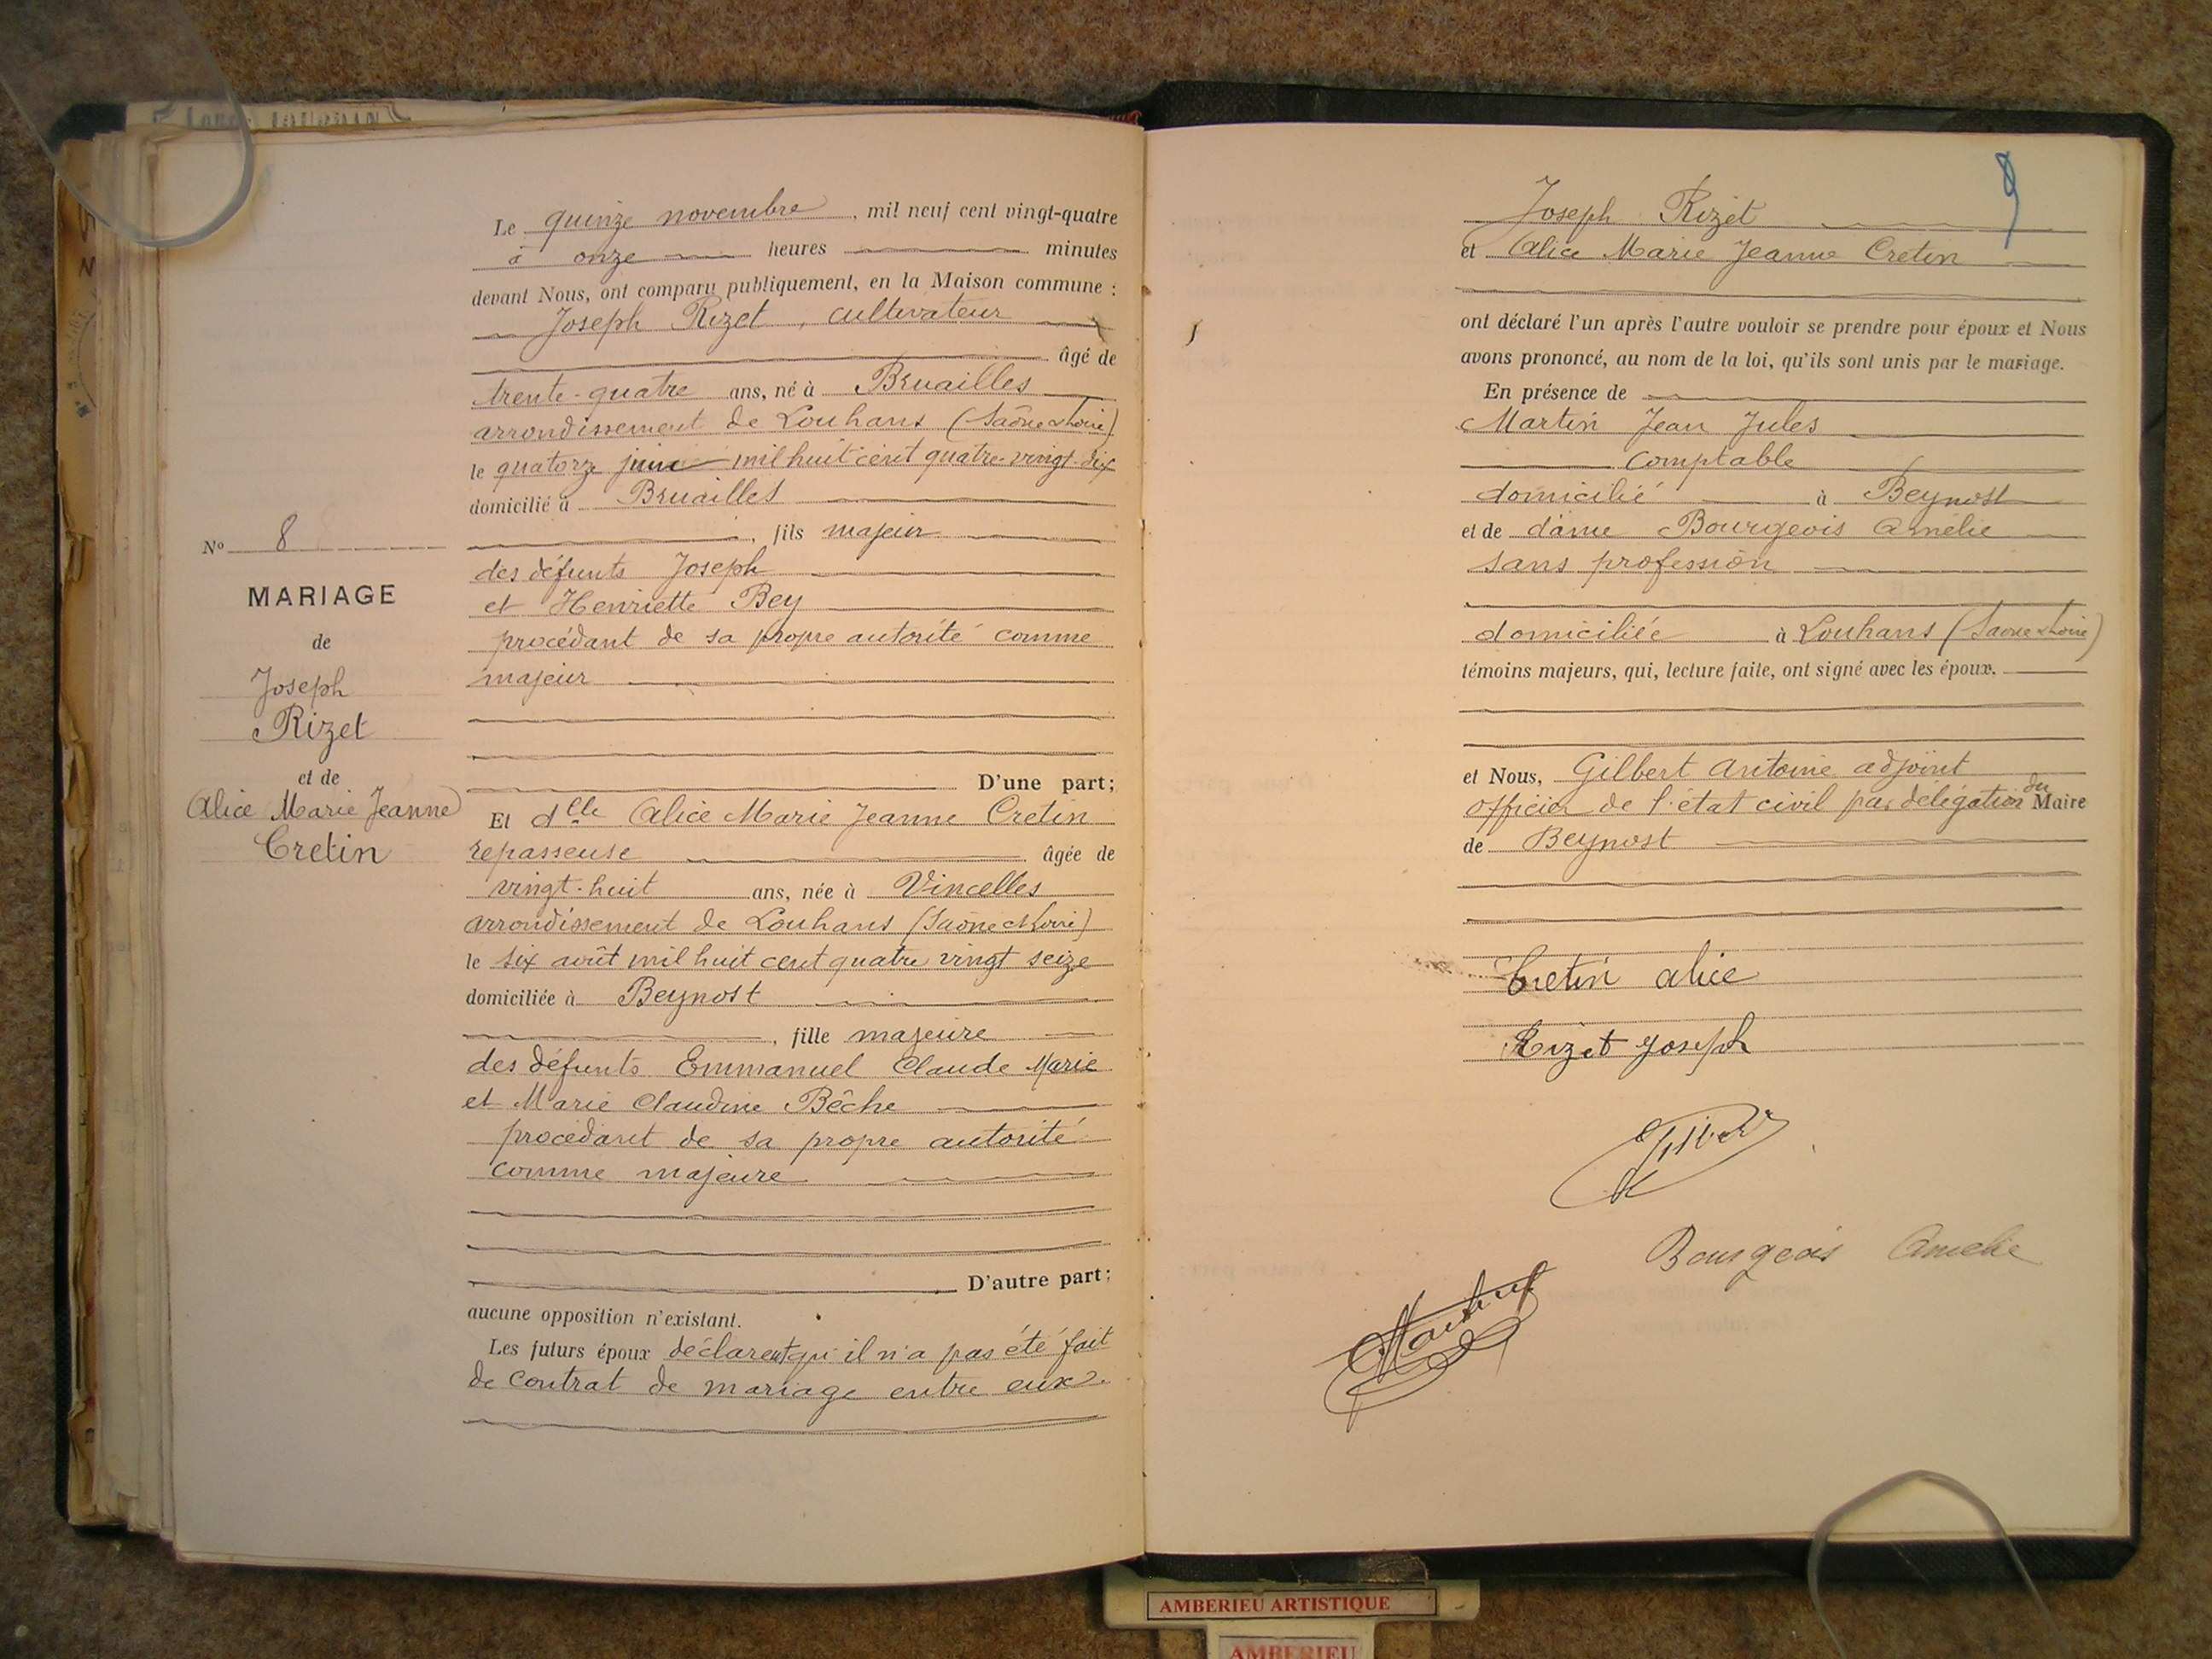 Le quinze novembre, mil neuf cent vingt-quatre
à onze heures minutes
devant Nous, ont comparu publiquement, en la Maison commune :
Joseph Rizet, cultivateur
âgé de
trente-quatre ans, né à Bruailles
arrondissement de Louhans (Saône & Loire)
le quatorze juin mil huit cent quatre-vingt-dix
domicilié à Bruailles
, fils majeur
des défunts Joseph
et Henriette Bey
procédant de sa propre autorité comme
majeur
D'une part;
No 8
MARIAGE
de
Joseph
Rizet
et de
Alice Marie Jeanne
Cretin
Et dlle Alice Marie Jeanne Cretin
repasseuse âgée de
vingt-huit ans, née à Vincelles
arrondissement de Louhans (Saône & Loire)
le six août mil huit cent quatre vingt seize
domiciliée à Beynost
, fille majeure
des défunts Emmanuel Claude Marie
et Marie Claudine Bêche
procédant de sa propre autorité
comme majeure
D'autre part;
aucune opposition n'existant.
Les futurs époux déclarent qu'il n'a pas été fait
de contrat de mariage entre eux.
9
Joseph Rizet
et Alice Marie Jeanne Cretin
ont déclaré l'un après l'autre vouloir se prendre pour époux et Nous
avons prononcé, au nom de la loi, qu'ils sont unis par le mariage.
En présence de
Martin Jean Jules
comptable
domicilié à Beynost
et de dame Bourgeois Amélie
sans profession
domiciliée à Louhans (Saône & Loire)
témoins majeurs, qui, lecture faite, ont signé avec les époux.
et Nous, Gilbert Antoine adjoint
officier de l'état civil par délégation du Maire
de Beynost
Cretin alice
Rizet joseph
Gilbert
Bourgeois Amelie
Martin
AMBERIEU ARTISTIQUE
AMBERIEU